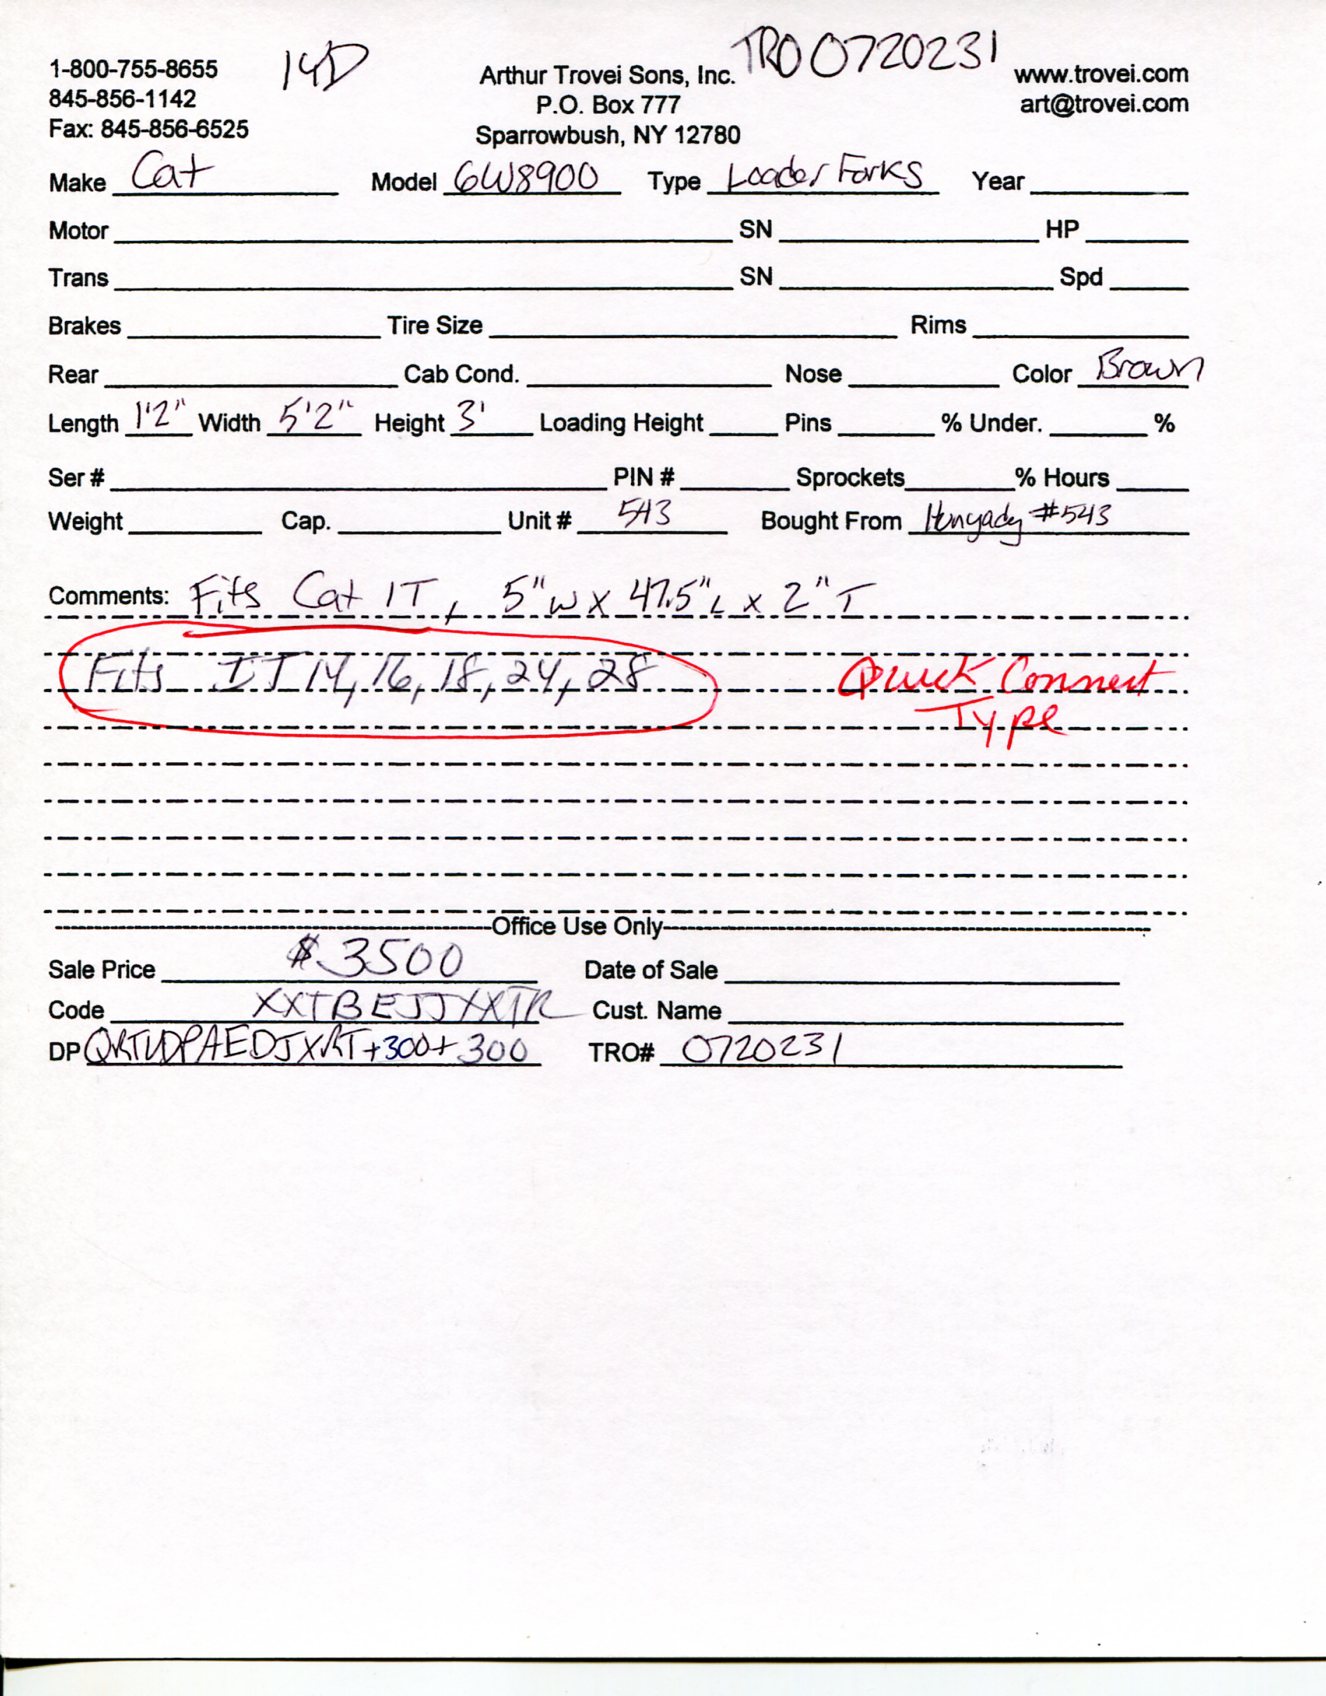 1-800-755-8655 14D Arthur Trovei Sons, Inc. TRO0720231 www.trovei.com
845-856-1142 P.O. Box 777 art@trovei.com
Fax: 845-856-6525 Sparrowbush, NY 12780
Make Cat Model 6W8900 Type Loader Forks Year
Motor SN HP
Trans SN Spd
Brakes Tire Size Rims
Rear Cab Cond. Nose Color Brown
Length 1'2" Width 5'2" Height 3' Loading Height Pins % Under. %
Ser # PIN # Sprockets % Hours
Weight Cap. Unit # 543 Bought From Hunyady #543
Comments: Fits Cat IT, 5"W x 47.5"L x 2"T
Fits IT 14, 16, 18, 24, 28 Quick Connect
Type
Office Use Only
Sale Price $3500 Date of Sale
Code XXTBEJJXXTR Cust. Name
DP +300+300 TRO# 0720231